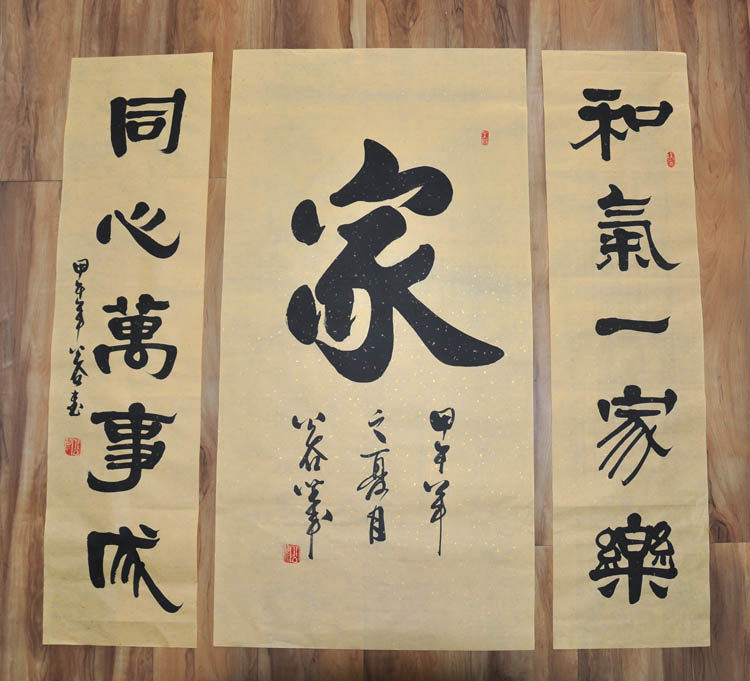 和氣一家樂
家
甲午年
之夏月
同心萬事成
甲午年